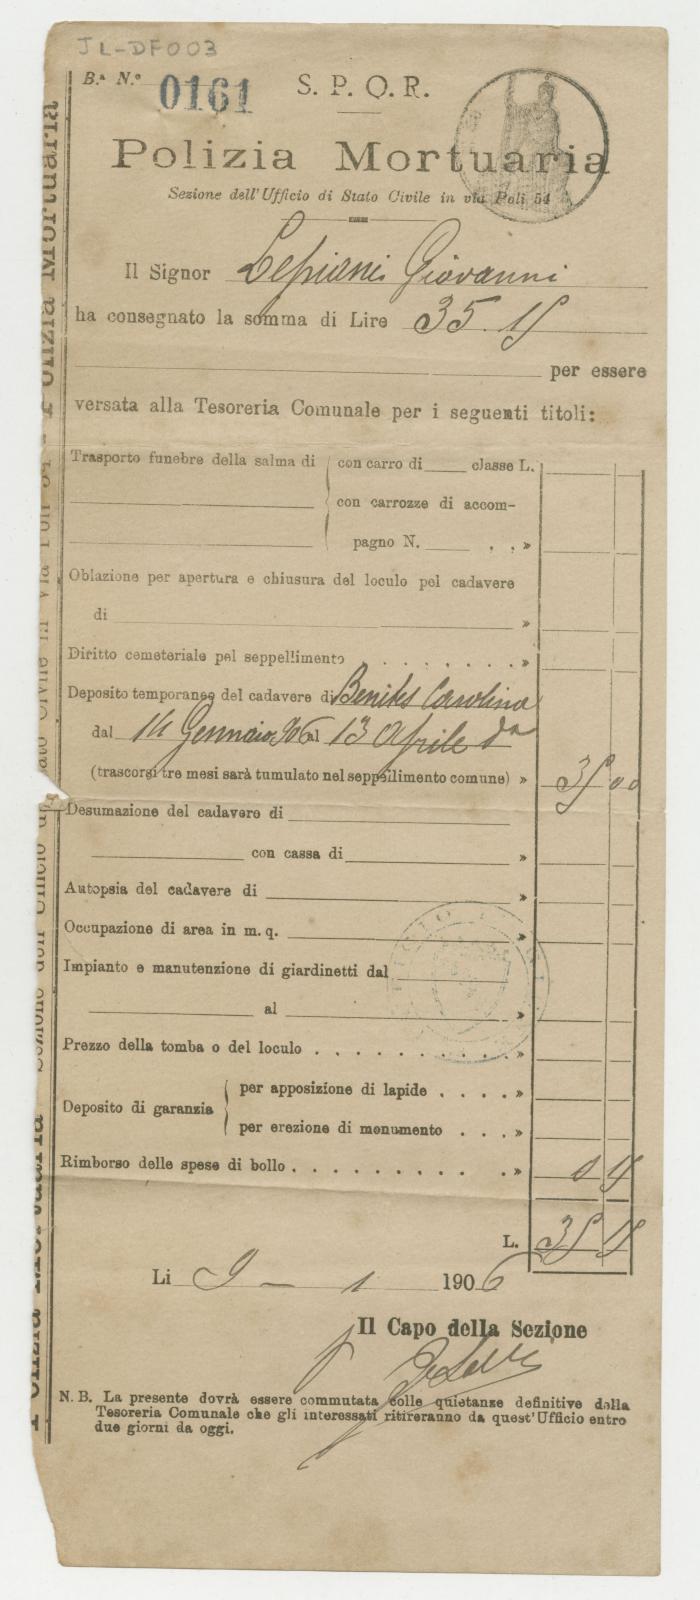 JL-DF003
B.ª N.º 0161 S. P. Q. R.
Polizia Mortuaria
Sezione dell'Ufficio di Stato Civile in via Poli 54
Il Signor Lepiani Giovanni
ha consegnato la somma di Lire 35.15
per essere
versata alla Tesoreria Comunale per i seguenti titoli:
Trasporto funebre della salma di con carro di classe L.
con carrozze di accom-
pagno N. . . »
Oblazione per apertura e chiusura del loculo pel cadavere
di »
Diritto cemeteriale pel seppellimento . . . . . . . »
Deposito temporaneo del cadavere di Benites Carolina
dal 14 Gennaio 906 al 13 Aprile do
(trascorsi tre mesi sarà tumulato nel seppellimento comune) » 35 00
Desumazione del cadavere di
con cassa di »
Autopsia del cadavere di »
Occupazione di area in m. q. »
Impianto e manutenzione di giardinetti dal
al »
Prezzo della tomba o del loculo . . . . . . . . . . »
Deposito di garanzia per apposizione di lapide . . . . »
per erezione di monumento . . . »
Rimborso delle spese di bollo . . . . . . . . . . » 0 15
L. 35 15
Li 9 - 1 1906
Il Capo della Sezione
N. B. La presente dovrà essere commutata colle quietanze definitive della
Tesoreria Comunale che gli interessati ritireranno da quest'Ufficio entro
due giorni da oggi.
Polizia Mortuaria